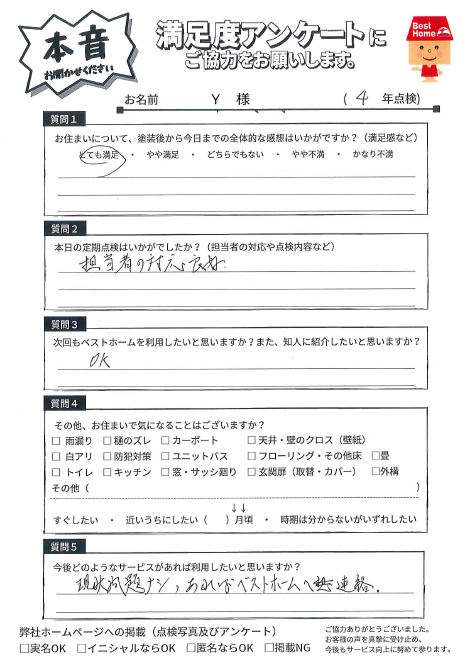 本音
お聞かせください
満足度アンケートに
ご協力をお願いします。
Best Home
お名前 Y 様 ( 4 年点検)
質問1
お住まいについて、塗装後から今日までの全体的な感想はいかがですか?(満足感など)
とても満足 ・ やや満足 ・ どちらでもない ・ やや不満 ・ かなり不満
質問2
本日の定期点検はいかがでしたか?(担当者の対応や点検内容など)
担当者の対応良好.
質問3
次回もベストホームを利用したいと思いますか?また、知人に紹介したいと思いますか?
OK
質問4
その他、お住まいで気になることはございますか?
□ 雨漏り □ 樋のズレ □ カーポート □ 天井・壁のクロス(壁紙)
□ 白アリ □ 防犯対策 □ ユニットバス □ フローリング・その他床 □畳
□ トイレ □ キッチン □ 窓・サッシ廻り □ 玄関扉(取替・カバー) □外構
その他( )
↓↓
すぐしたい ・ 近いうちにしたい( )月頃 ・ 時期は分からないがいずれしたい
質問5
今後どのようなサービスがあれば利用したいと思いますか?
現状問題ナシ、あればベストホームへ連絡.
弊社ホームページへの掲載(点検写真及びアンケート)
□実名OK □イニシャルならOK □匿名ならOK □掲載NG
ご協力ありがとうございました。
お客様の声を真摯に受け止め、
今後もサービス向上に努めて参ります。